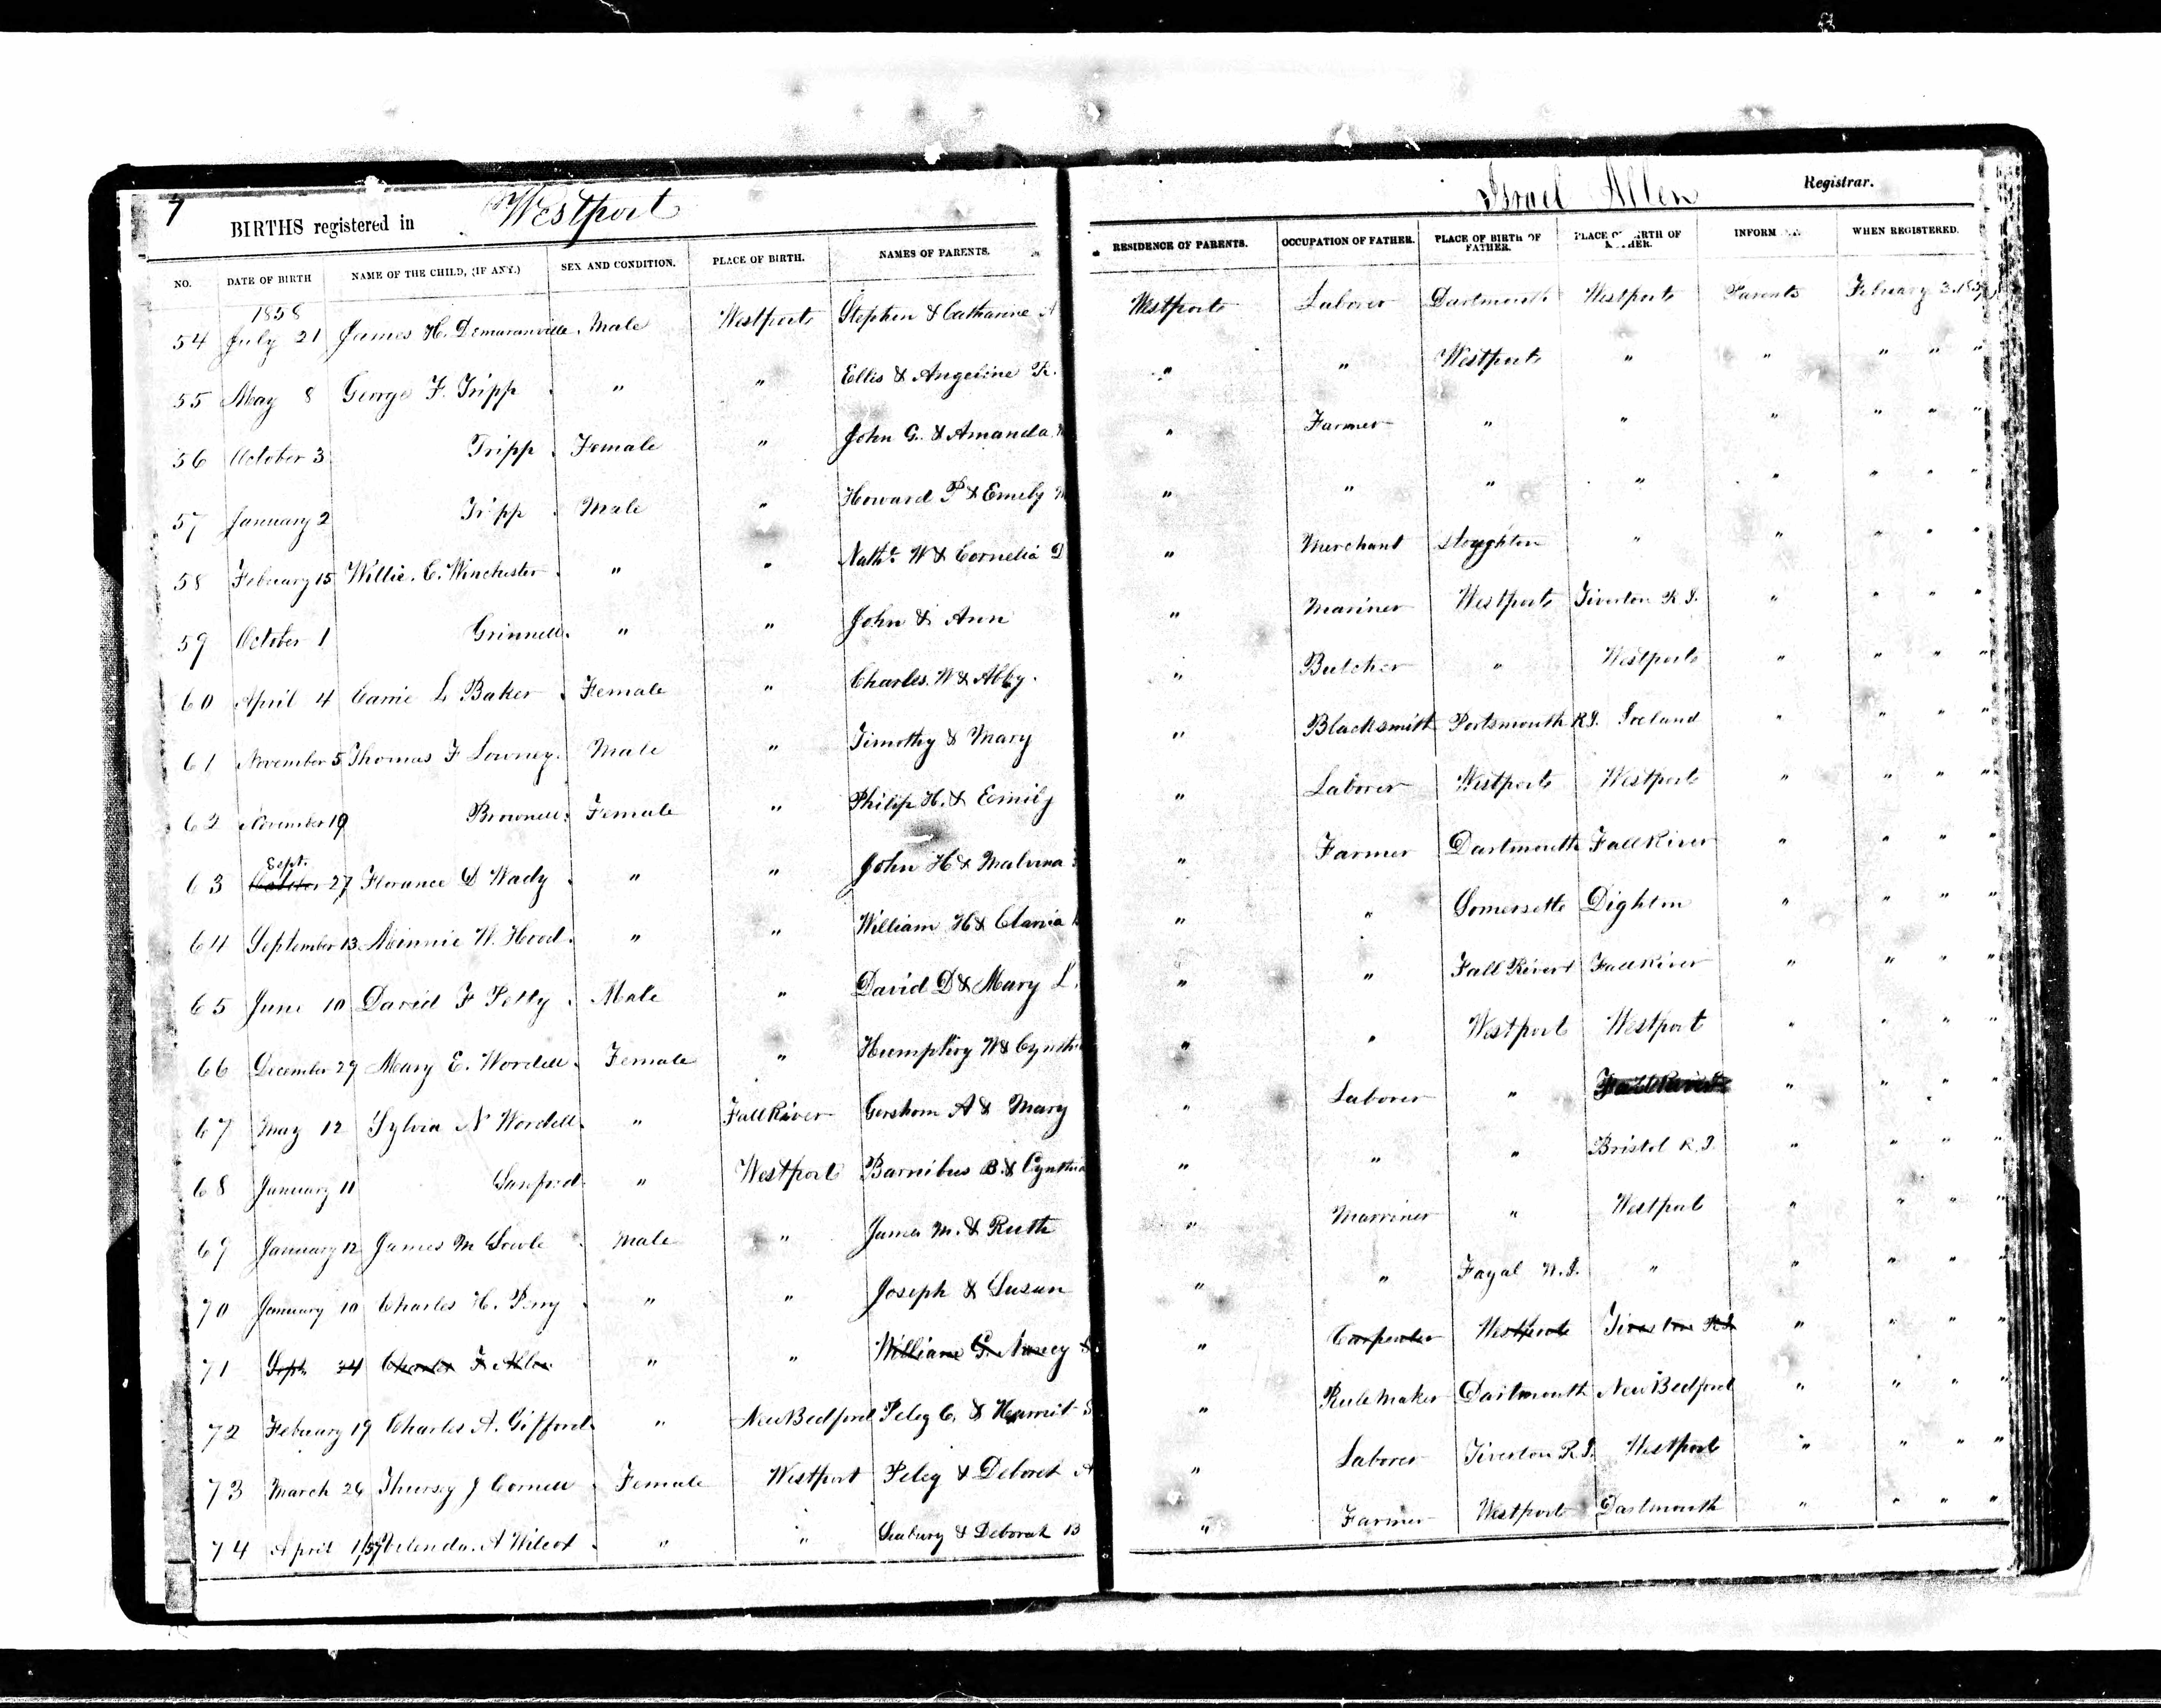 7
BIRTHS registered in Westport Israel Allen Registrar.
NO. DATE OF BIRTH NAME OF THE CHILD, (IF ANY.) SEX AND CONDITION. PLACE OF BIRTH. NAMES OF PARENTS. RESIDENCE OF PARENTS. OCCUPATION OF FATHER. PLACE OF BIRTH OF FATHER. PLACE OF BIRTH OF MOTHER. WHEN REGISTERED.
1858
54 July 21 James H. Demaranville. Male Westport Stephen & Catharine A Westport Laborer Dartmouth Westport Parents February 2.
55 May 8 George F. Tripp " " Ellis & Angeline K. " " Westport " " " " "
56 October 3 Tripp Female " John G. & Amanda " Farmer " " " " " "
57 January 2 Tripp Male " Howard P & Emily " " " " " " " "
58 February 15 Willie. C. Winchester " " Nathl. W & Cornelia D " Merchant Stoughton " " " " "
59 October 1 Grinnell " " John & Ann " Mariner Westport Tiverton R I. " " " "
60 April 4 Carrie L Baker Female " Charles. W & Abby. " Butcher " Westport " " " "
61 November 5 Thomas F Lowney. Male " Timothy & Mary " Blacksmith Portsmouth R I. Ireland " " " "
62 November 19 Brownell. Female " Philip H. & Emily " Laborer Westport Westport " " " "
Sept.
63 October 27 Florance D Wady " " John H & Malvina " Farmer Dartmouth Fall River " " " "
64 September 13 Minnie W. Hood. " " William H & " " Somersette Dighton " " " "
65 June 10 David F Petty Male " David D & Mary L. " " Fall River Fall River " " " "
66 December 29 Mary E. Wordell. Female " Humphry W & Cynthia " " Westport Westport " " " "
67 May 12 Sylvia N Wordell. " Fall River Gershom A & Mary " Laborer " Fall River " " " "
68 January 11 Sanford " Westport Barnibus B. & Cynthia " " " Bristol R. I. " " " "
69 January 12 James M Sowle Male " James M. & Ruth " Marriner " Westport " " " "
70 January 10 Charles H. Perry " " Joseph & Susan " " Fayal W. I. " " " " "
71 Sept. 24 Charles F Allen " " William G. Nancy " Carpenter Westport Tiverton R I. " " " "
72 February 19 Charles A. Gifford " New Bedford Peleg C. & Harriet S " Rule Maker Dartmouth New Bedford " " " "
73 March 26 Thursey J Cornell Female Westport Peleg & Deborah A " Laborer Tiverton R I. Westport " " " "
74 April 1/57 Melinda. A Wilcox " " Seabury & Deborah B " Farmer Westport Dartmouth " " " "